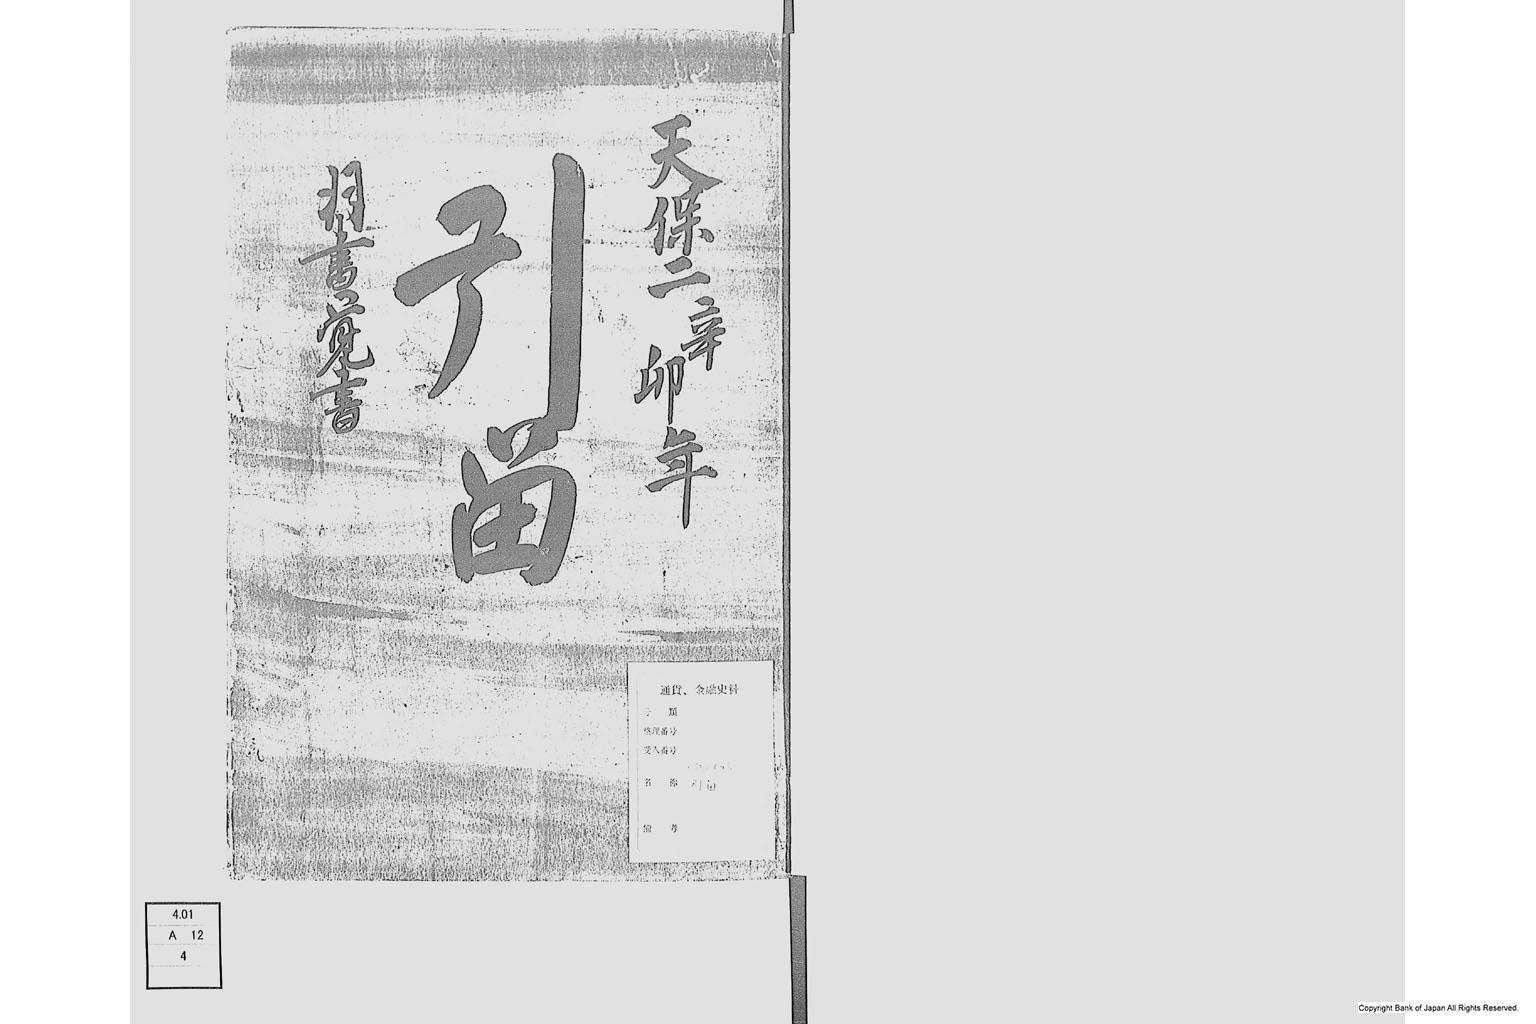 天保二辛卯年
引苗
羽書覚書
通貨、金融史料
分　類
整理番号
受入番号
名　称　引苗
備　考
4.01
A 12
4
Copyright Bank of Japan All Rights Reserved.